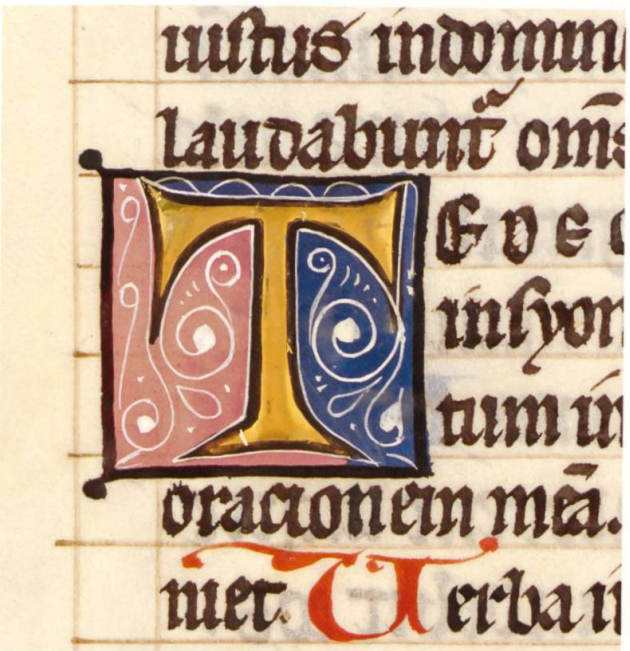 iustus indomin
laudabunt᷑ om̄s
TE DEC
insyon
tum in
oracionem meā.
niet. Verba in